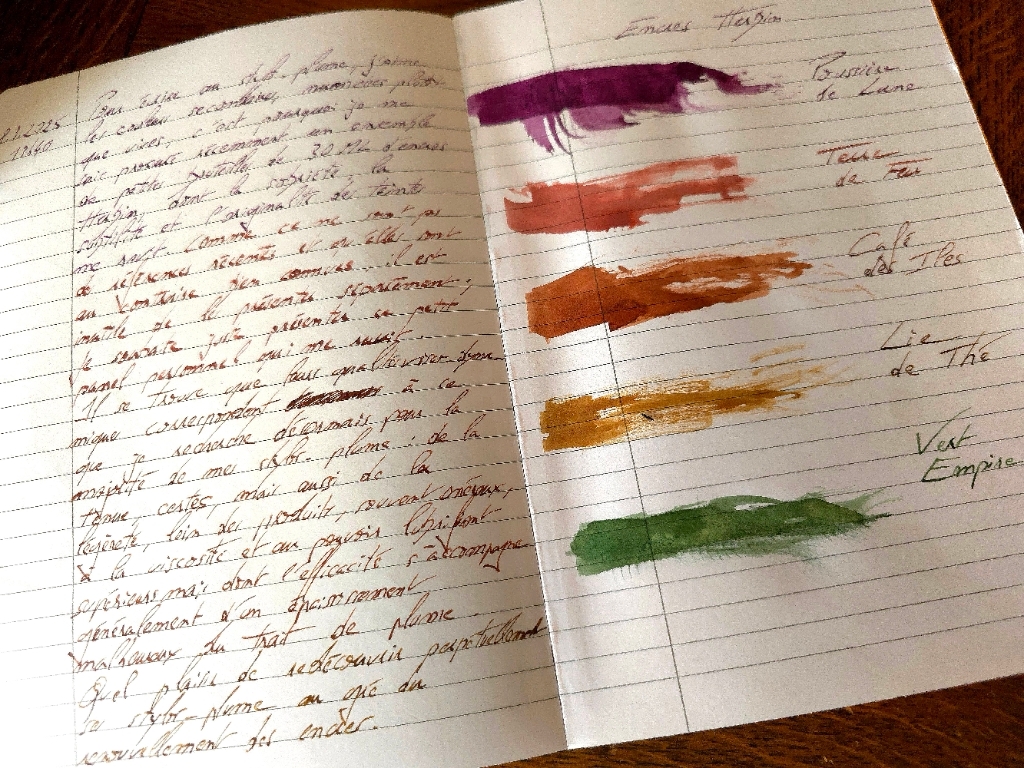 2.1.2025
11h40
Pour écrire au stylo-plume, j'aime
les couleurs secondaires, nuancées plutôt
que vives, c'est pourquoi je me
suis procuré récemment un ensemble
de petites bouteilles de 30 ML d'encres
Herbin, dont la sobriété, la
subtilité et l'originalité des teintes
me ravit. Comme ce ne sont pas
de références récentes et qu'elles sont
au contraire bien connues, il est
inutile de les présenter séparément ;
je souhaite juste présenter ce petit
panel personnel qui me ravit.
Il se trouve que leurs qualités
correspondent à ce
que je recherche désormais pour la
majorité de mes stylos-plume : de la
tenue, certes, mais aussi de la
légèreté, loin des produits, souvent onéreux,
à la viscosité et au pouvoir lubrifiant
supérieurs mais dont l'efficacité s'accompagne
généralement d'un épaississement
malheureux du trait de plume
Quel plaisir de redécouvrir perpétuellement
su stylo-plume au gré du
renouvellement des encres.
Encres Herbin
Poussière
de Lune
Terre
de Feu
Café
des Iles
Lie
de Thé
Vert
Empire